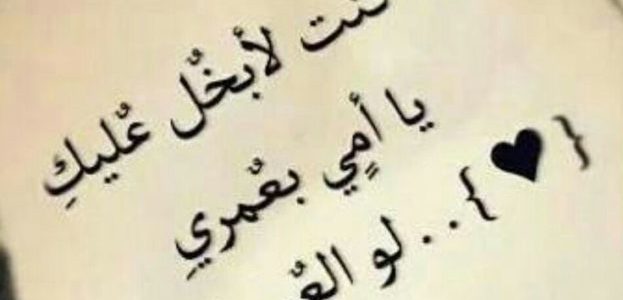 لأبخُل عُليكِ
يا أمٍي بعٌمريِ
{♥}..لو